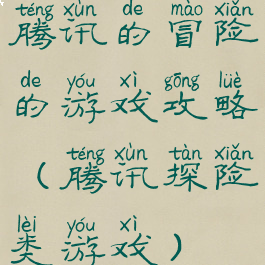 téng xùn de mào xiǎn
腾讯的冒险
de yóu xì gōng lüè
的游戏攻略
téng xùn tàn xiǎn
(腾讯探险
lèi yóu xì
类游戏)